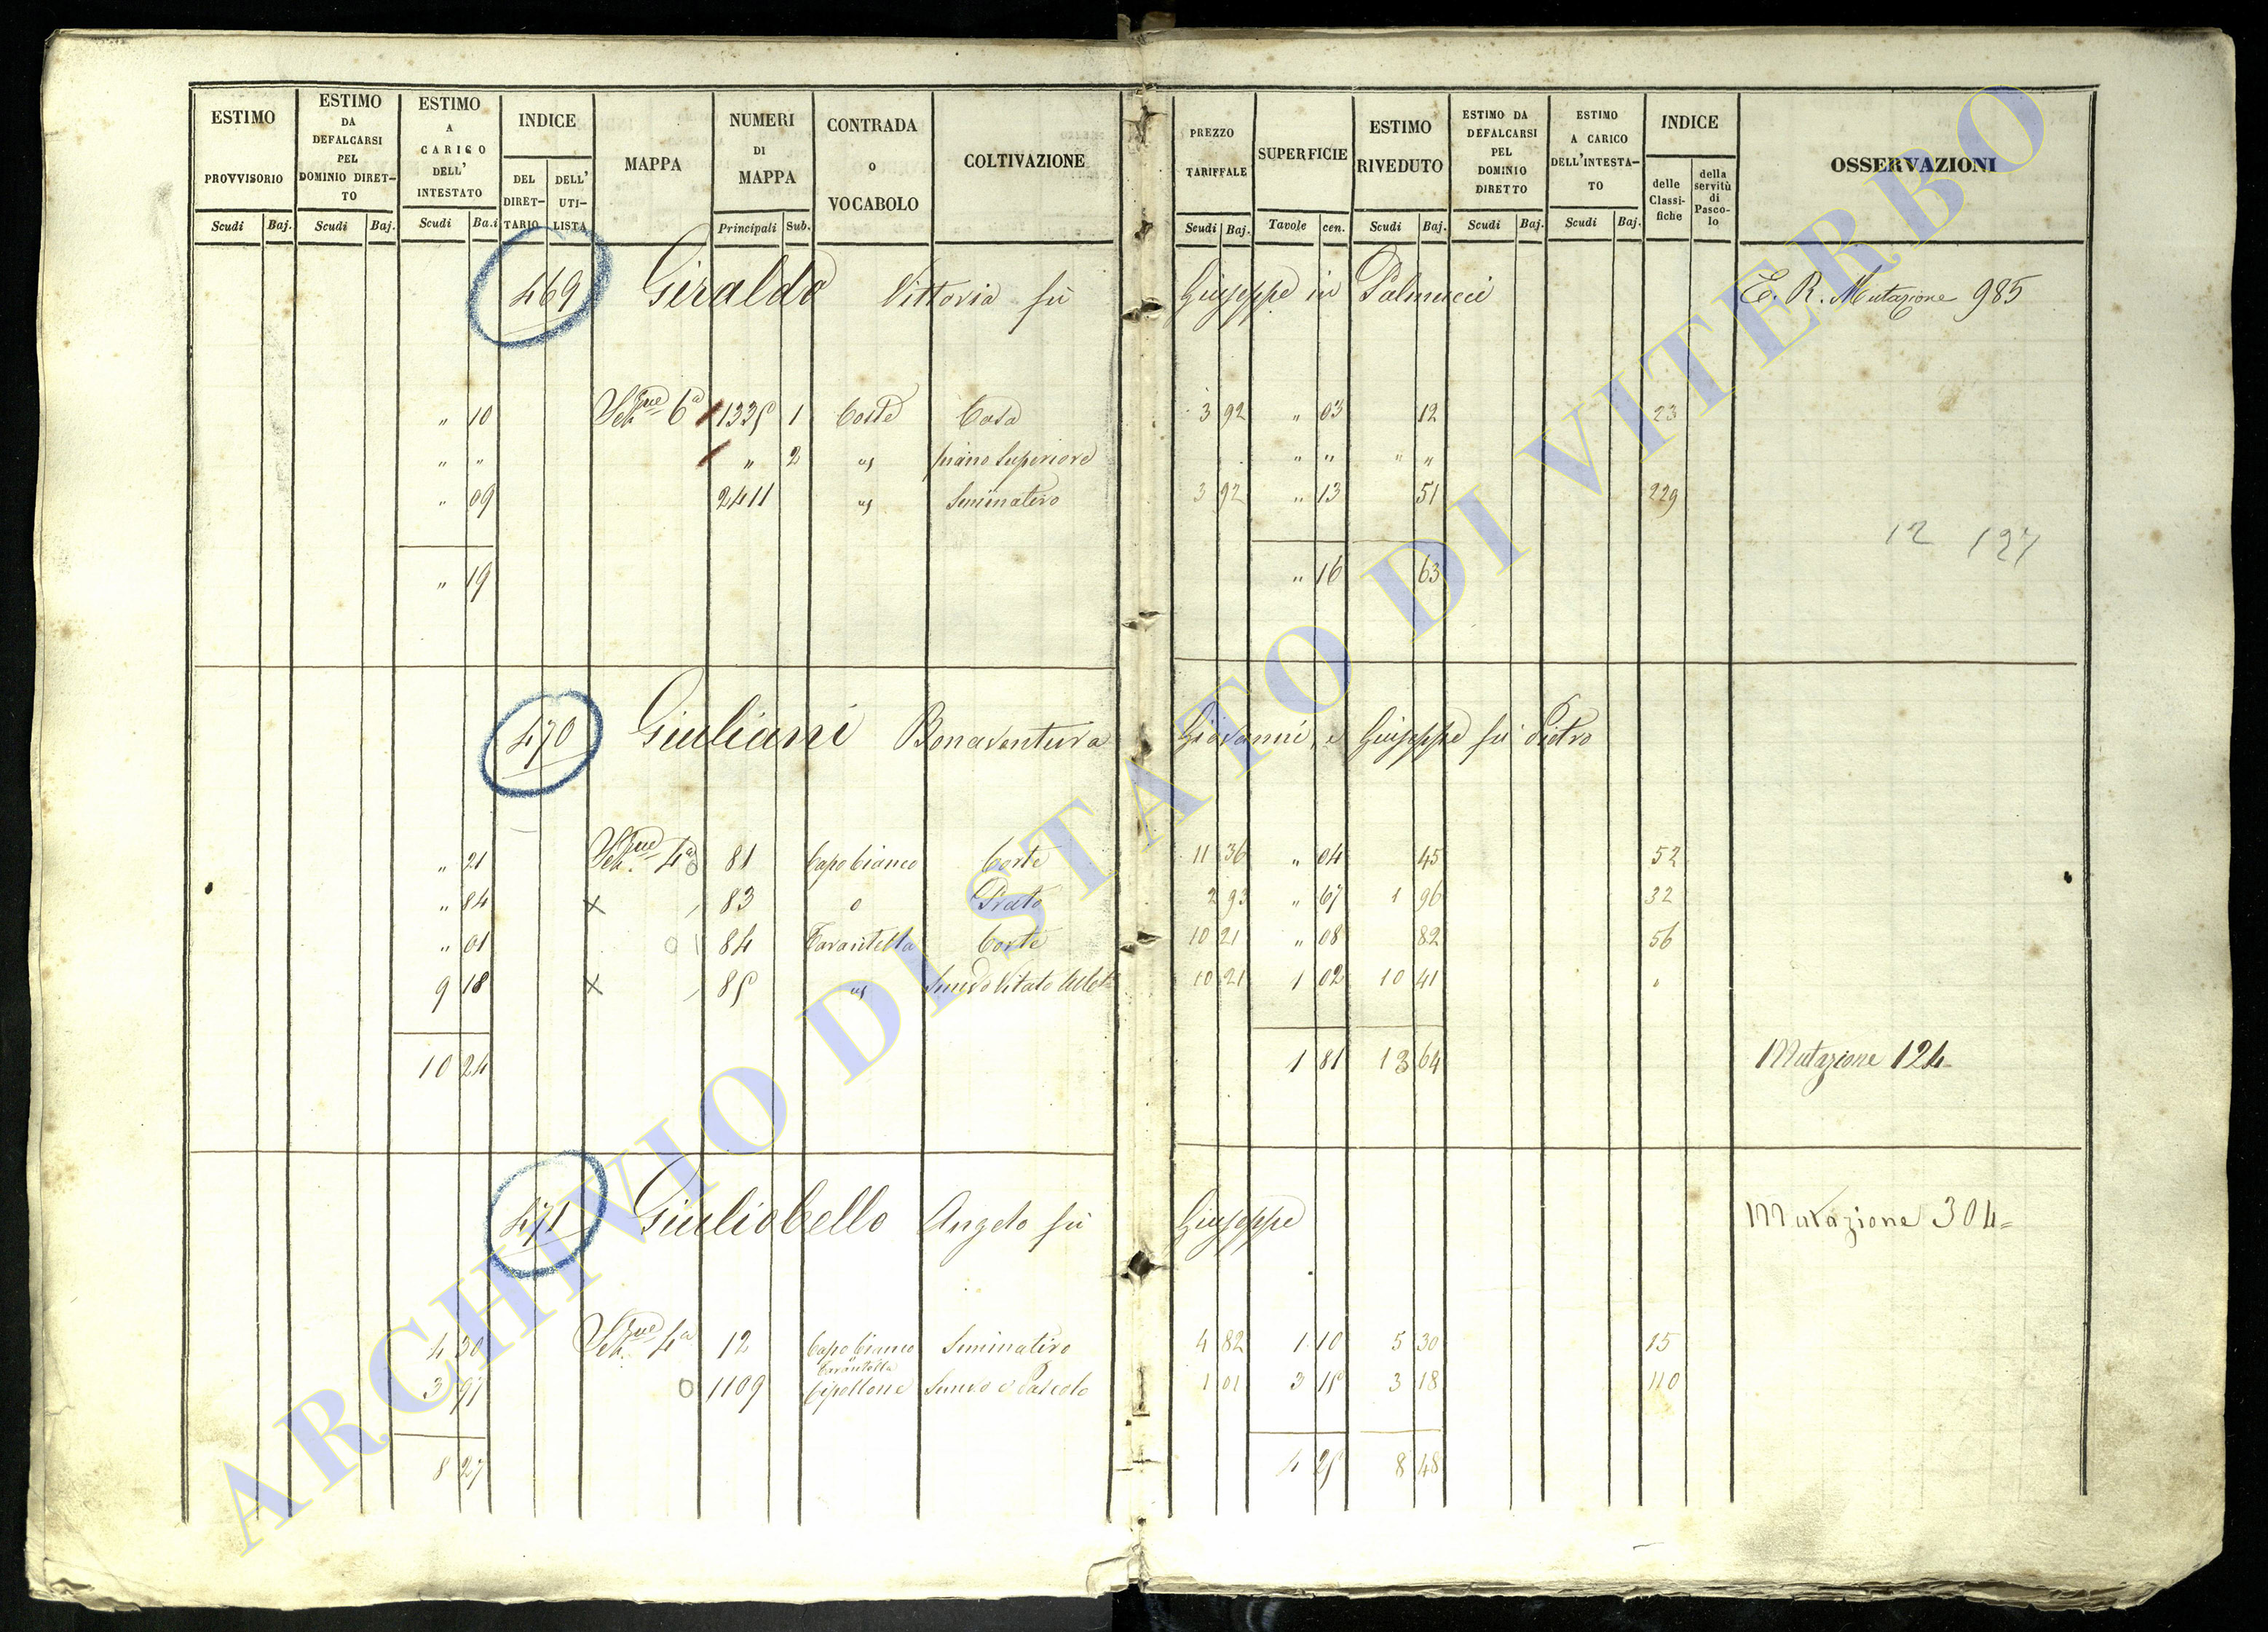 ESTIMO PROVVISORIO Scudi Baj.
ESTIMO DA DEFALCARSI PEL DOMINIO DIRET-TO Scudi Baj.
ESTIMO A CARICO DELL' INTESTATO Scudi Ba.i
INDICE DEL DIRET-TARIO DELL' UTI-LISTA
MAPPA
NUMERI DI MAPPA Principali Sub.
CONTRADA o VOCABOLO
COLTIVAZIONE
PREZZO TARIFFALE Scudi Baj.
SUPERFICIE Tavole cen.
ESTIMO RIVEDUTO Scudi Baj.
ESTIMO DA DEFALCARSI PEL DOMINIO DIRETTO Scudi Baj.
ESTIMO A CARICO DELL'INTESTA-TO Scudi Baj.
INDICE delle Classi-fiche della servitù di Pasco-lo
OSSERVAZIONI
469 Giraldo Vittoria fù Giuseppe in Palmucci E. R. Mutazione 985
" 10 6a 1335 1 Coste Casa 3 92 " 03 12 23
" " " 2 " piano Superiore " " " "
" 09 2411 " Seminativo 3 92 " 13 51 229
12 127
" 19 " 16 63
470 Giuliani Bonaventura Giovanni, e Giuseppe fù Pietro
" 21 4a 81 Capo bianco Corte 11 36 " 04 45 52
" 84 x 83 o Prato 2 93 " 67 1 96 32
" 01 0 84 Tarantella Corte 10 21 " 08 82 56
9 18 x 85 " Semvo Vitato 10 21 1 02 10 41
10 24 1 81 13 64 Mutazione 124
471 Giuliobello Angelo fù Giuseppe Mutazione 304=
4 30 4a 12 Capo bianco Seminativo 4 82 1 10 5 30 15
Tarantella
3 97 0 1109 Cipollone Semvo e Pascolo 1 01 3 15 3 18 110
8 27 4 25 8 48
ARCHIVIO DI STATO DI VITERBO